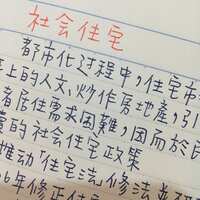 社會住宅
都市化过程中,住宅市
上的人文、炒作房地產,引
者居住需求困難,因而於民
的社会住宅政策
推動「住宅法」修法並研
6年修正住宅